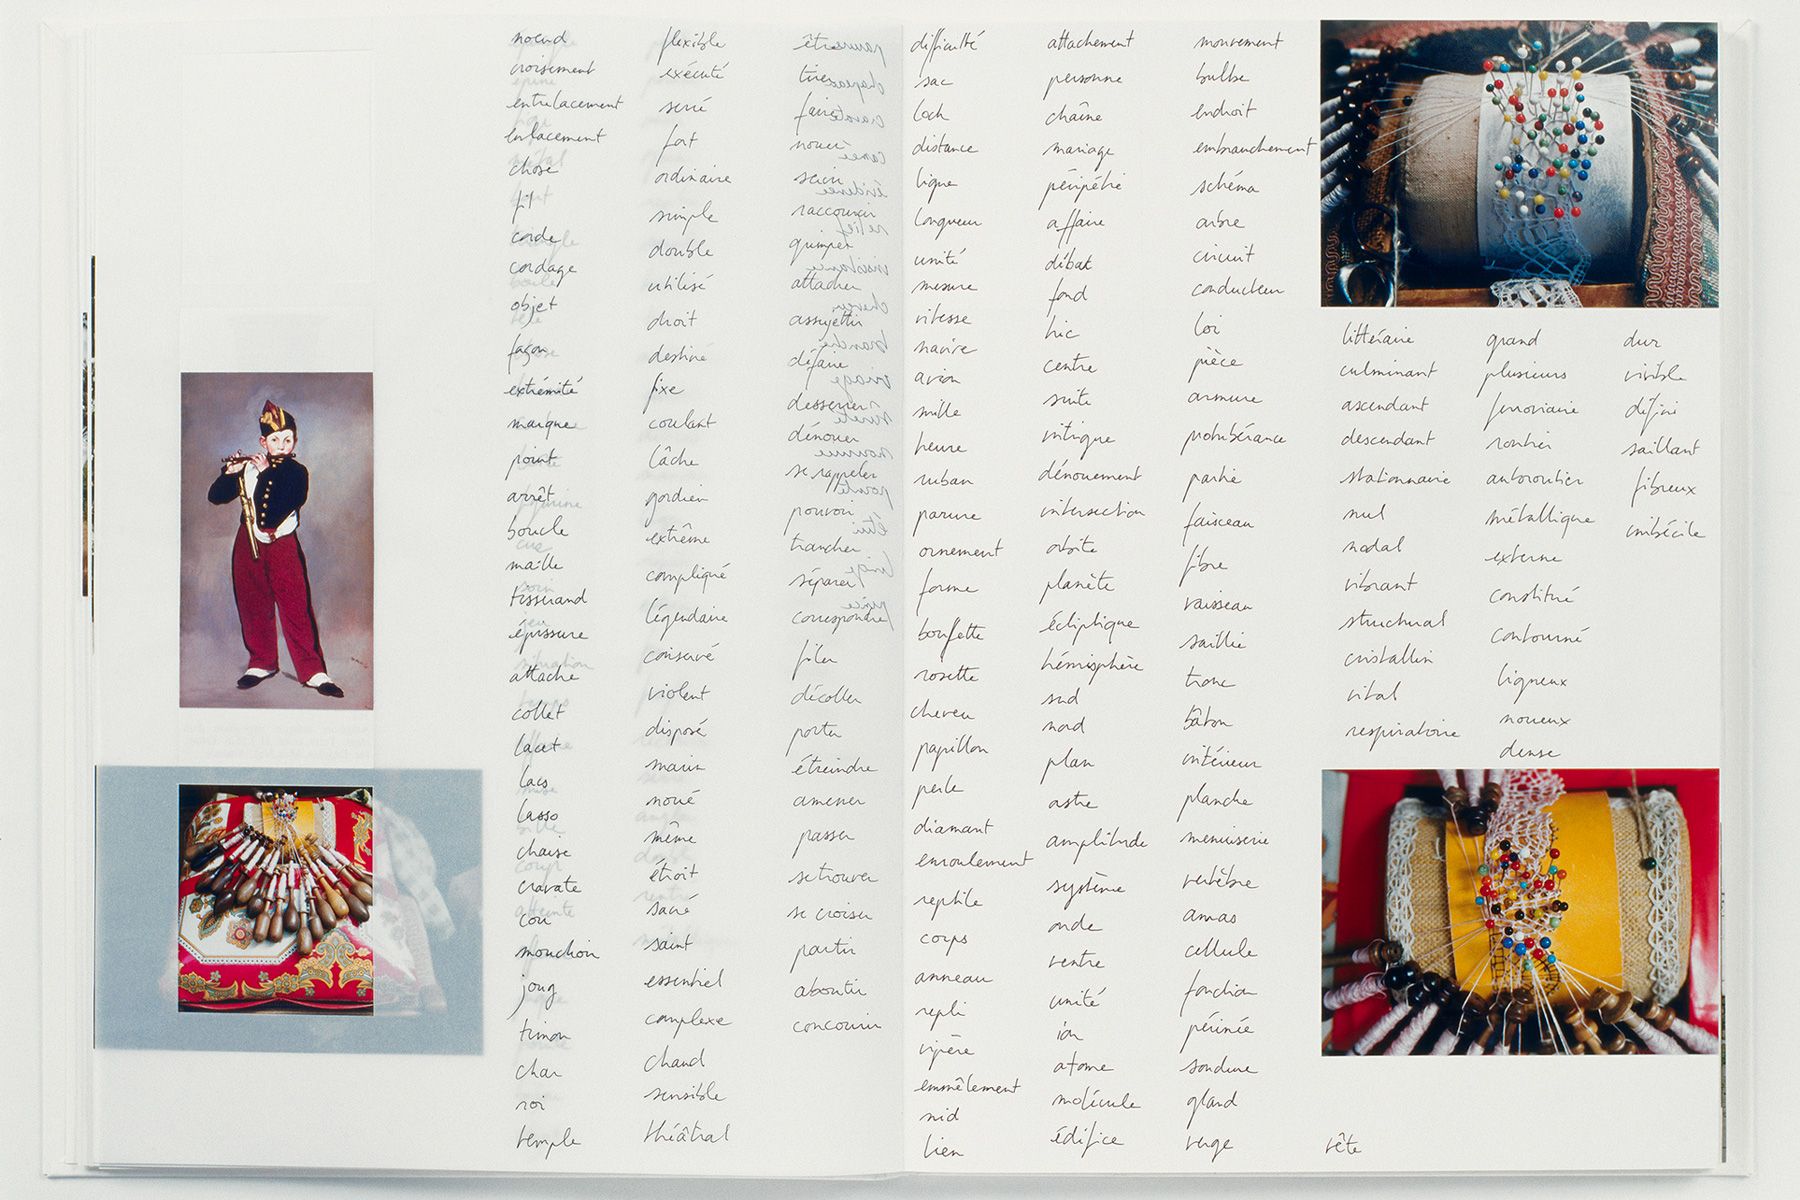 nœud
croisement
entrelacement
enlacement
chose
fil
corde
cordage
objet
façon
extrémité
marque
point
arrêt
boucle
maille
tisserand
épissure
attache
collet
lacet
lacs
lasso
chaise
cravate
cou
mouchoir
joug
timon
char
roi
temple
flexible
exécuté
serré
fort
ordinaire
simple
double
utilisé
droit
destiné
fixe
coulant
lâche
gordien
extrême
compliqué
légendaire
conservé
violent
disposé
marin
noué
même
étroit
sacré
saint
essentiel
complexe
chaud
sensible
théâtral
être
tirer
faire
nouer
raccourcir
grimper
attacher
assujettir
défaire
desserrer
dénouer
se rappeler
pouvoir
trancher
séparer
correspondre
filer
décoller
porter
étreindre
amener
passer
se trouver
se croiser
partir
aboutir
concourir
difficulté
sac
loch
distance
ligne
longueur
unité
mesure
vitesse
navire
avion
mille
heure
ruban
parure
ornement
forme
bouffette
rosette
cheveu
papillon
perle
diamant
enroulement
reptile
corps
anneau
repli
vipère
emmêlement
nid
lien
attachement
personne
chaîne
mariage
péripétie
affaire
débat
fond
hic
centre
suite
intrigue
dénouement
intersection
orbite
planète
écliptique
hémisphère
sud
nord
plan
astre
amplitude
système
onde
ventre
unité
ion
atome
molécule
édifice
mouvement
bulbe
endroit
embranchement
schéma
arbre
circuit
conducteur
loi
pièce
armure
protubérance
partie
faisceau
fibre
vaisseau
saillie
tronc
bâton
intérieur
planche
menuiserie
vertèbre
amas
cellule
fonction
périnée
soudure
gland
verge
tête
littéraire
culminant
ascendant
descendant
stationnaire
nul
nodal
vibrant
structural
cristallin
vital
respiratoire
grand
plusieurs
ferroviaire
routier
autoroutier
métallique
externe
constitué
contourné
ligneux
noueux
dense
dur
visible
défini
saillant
fibreux
imbécile